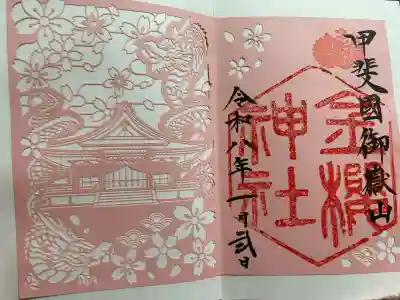 甲斐國御嶽山
金櫻
神社
令和八年一月弐日